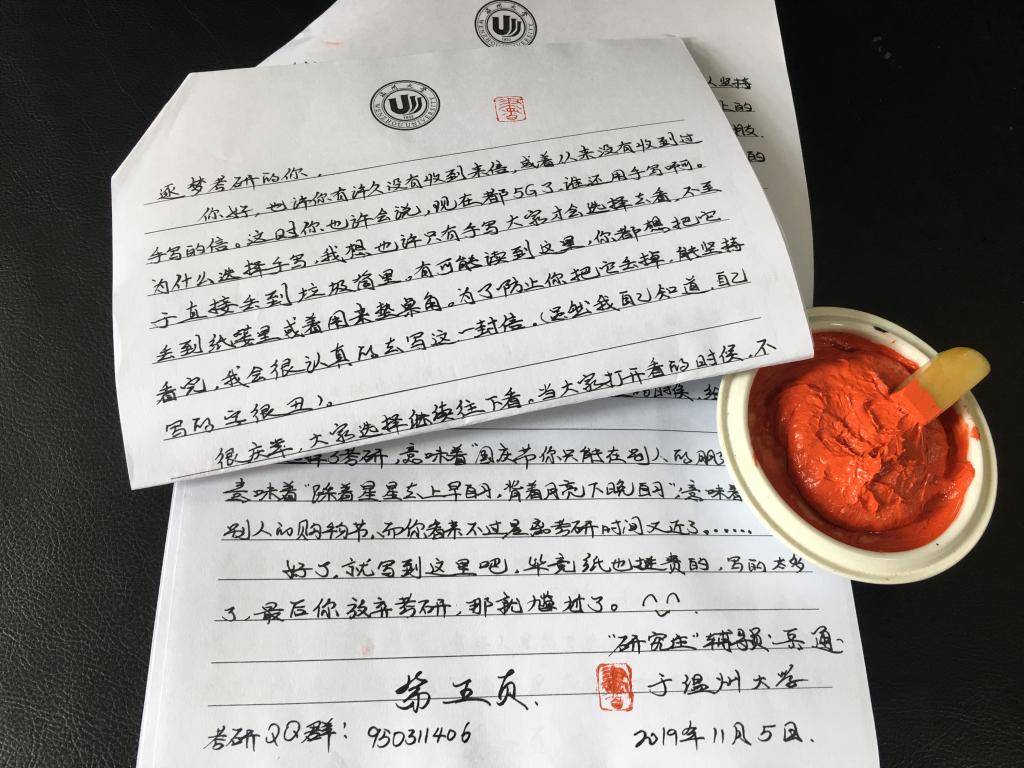 温州大学
WENZHOU UNIVERSITY
人坚持
上的
的
温州大学
WENZHOU UNIVERSITY
逐梦考研的你，
你好，也许你有许久没有收到来信，或着从来没有收到过
手写的信。这时你也许会说，现在都5G了，谁还用手写啊。
为什么选择手写，我想也许只有手写大家才会选择去看，不至
于直接丢到垃圾筒里。有可能读到这里，你都想把它
丢到纸篓里或着用来垫桌角。为了防止你把它丢掉，能坚持
看完，我会很认真的去写这一封信。（虽然我自己知道，自己
写的字很丑）。
很庆幸，大家选择继续往下看。当大家打开看的时候，不
的时候，
了考研，意味着“国庆节你只能在别人的朋
意味着“踩着星星去上早自习，背着月亮下晚自习”；意味着
别人的购物节，而你看来不过是离考研时间又近了……
好了，就写到这里吧，毕竟纸也挺贵的，写的太多
了，最后你放弃考研，那就尴尬了。
“研究生”辅导员：岳通
第五页.
于温州大学
考研QQ群：950311406
2019年11月5日.